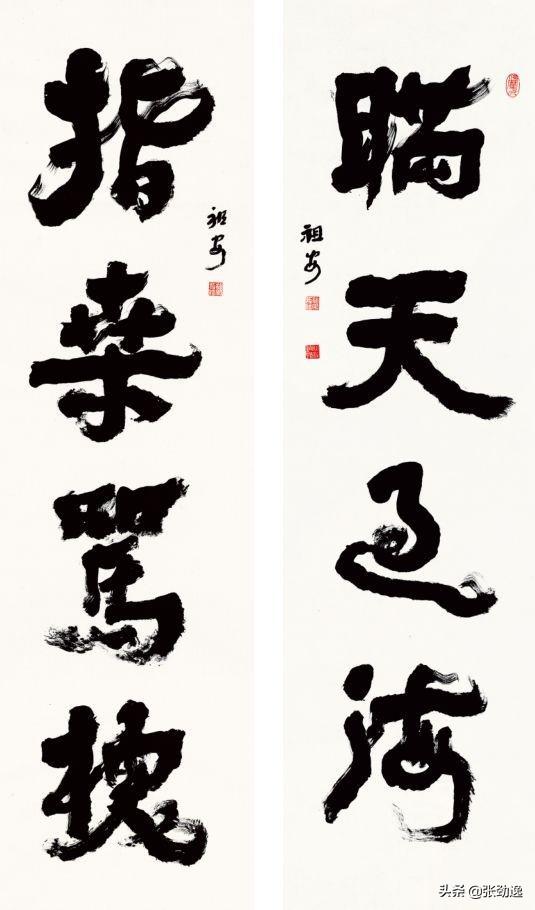 瞞天過海
祖安
指桑駡槐
祖安
头条 @张劲逸